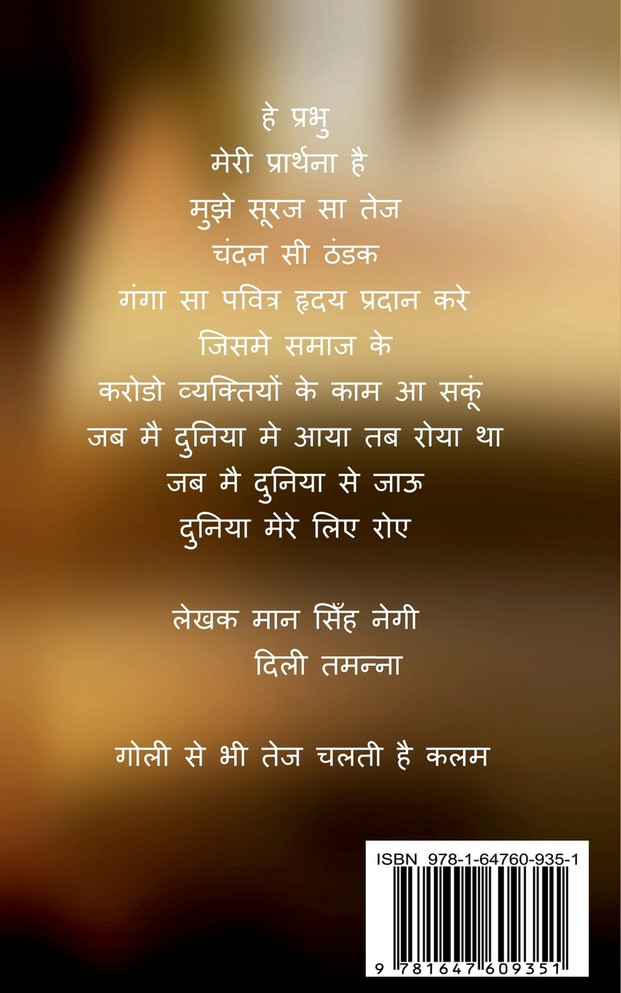 हे प्रभु
मेरी प्रार्थना है
मुझे सूरज सा तेज
चंदन सी ठंडक
गंगा सा पवित्र हृदय प्रदान करे
जिसमे समाज के
करोडो व्यक्तियों के काम आ सकूं
जब मै दुनिया मे आया तब रोया था
जब मै दुनिया से जाऊ
दुनिया मेरे लिए रोए
लेखक मान सिँह नेगी
दिली तमन्ना
गोली से भी तेज चलती है कलम
ISBN 978-1-64760-935-1
9 781647 609351